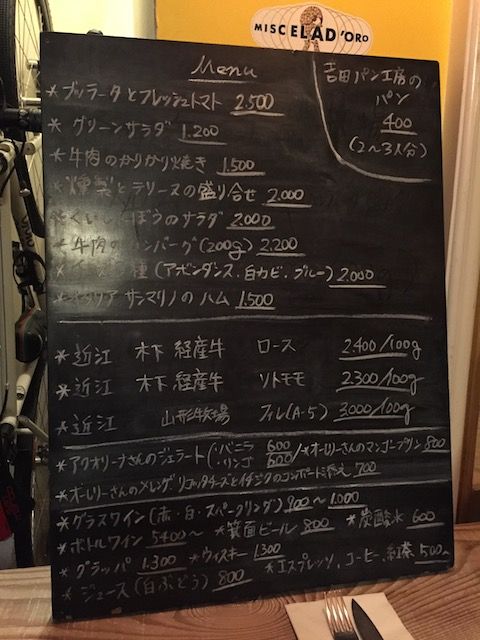 MISCELAD'ORO
Menu
吉田パン工房の
パン
400
(2〜3人分)
*ブッラータとフレッシュトマト 2.500
*グリーンサラダ 1.200
*牛肉のかりかり焼き 1.500
*燻製とテリーヌの盛り合せ 2.000
ぼうのサラダ 2.000
*牛肉のハンバーグ(200g) 2.200
種(アボンダンス.白カビ.ブルー) 2.000
*イタリア サンマリノのハム 1.500
*近江 木下 経産牛 ロース 2.400/100g
*近江 木下 経産牛 ソトモモ 2.300/100g
*近江 山形牧場 フィレ(A-5) 3000/100g
*アクオリーナさんのジェラート(・バニラ 600 ・リンゴ 600 / *オーレリーさんのマンゴープリン 800
*オーレリーさんのメレンゲ リコッタチーズとイチジクのコンポート添え 700
*グラスワイン(赤・白・スパークリング) 900〜1.000
*ボトルワイン 5400〜 *箕面ビール 800 *炭酸水 600
*グラッパ 1.300 *ウィスキー 1300
*ジュース(白ぶどう) 800 *エスプレッソ、コーヒー、紅茶 500〜